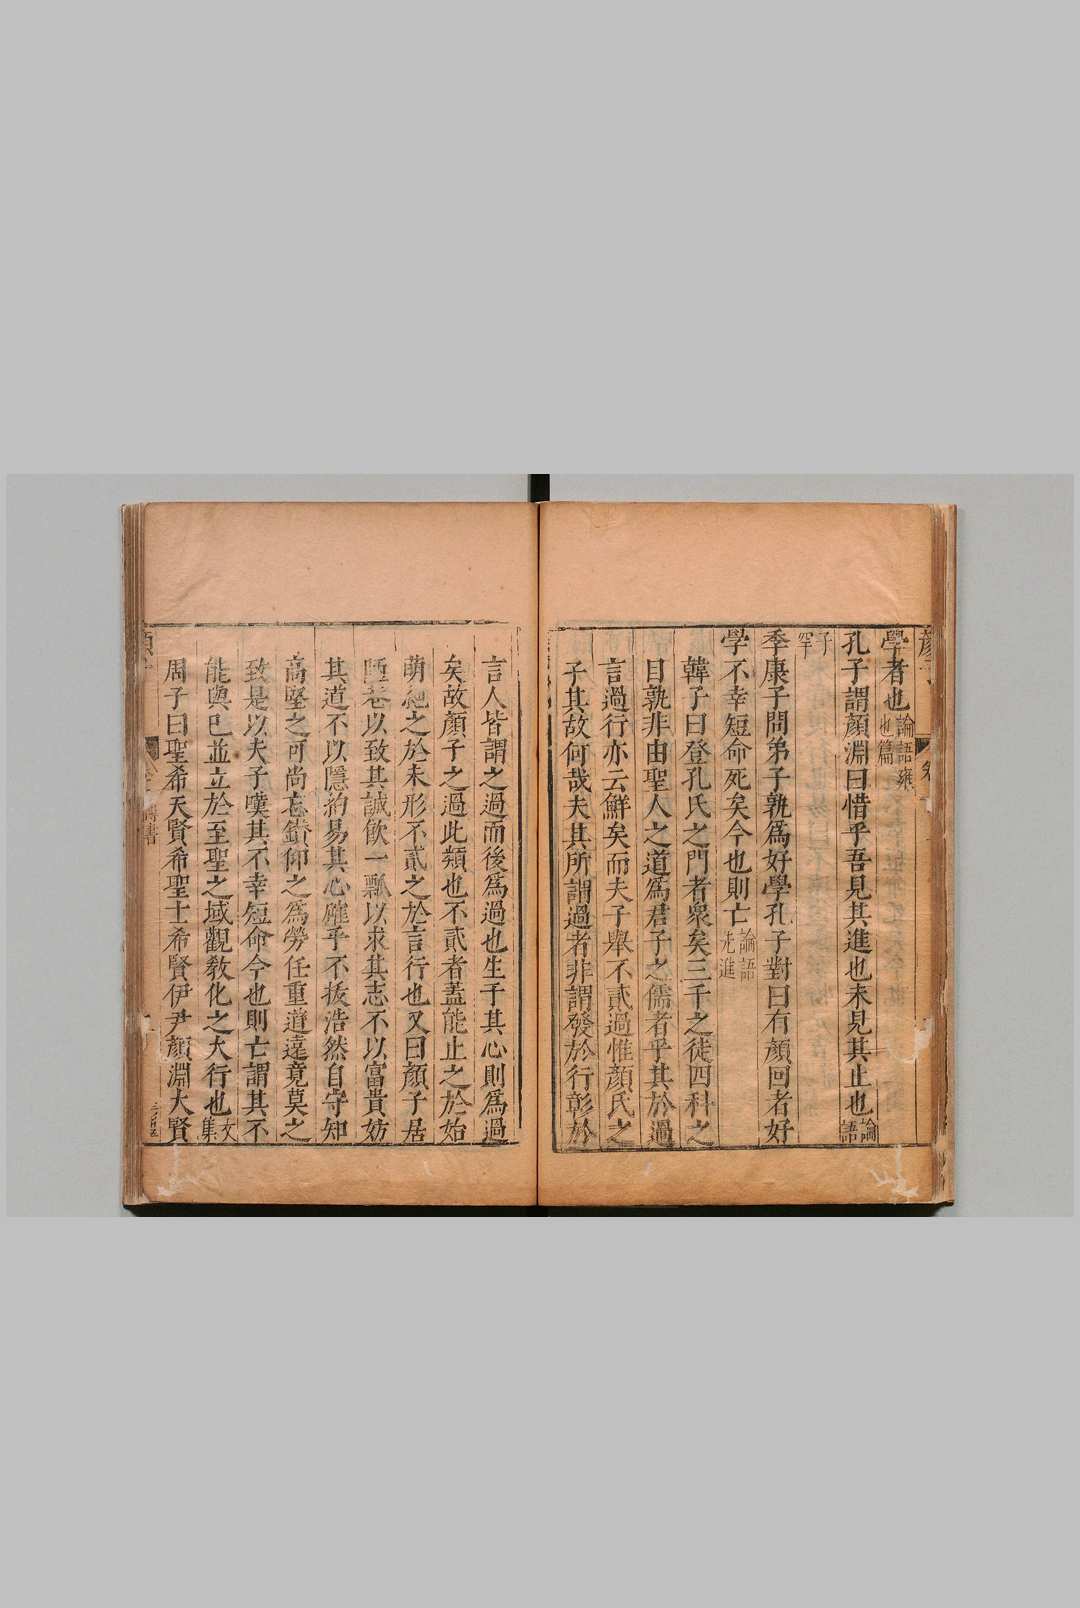 學者也論語雍
也篇
孔子謂顏淵曰惜乎吾見其進也未見其止也論語
子罕
季康子問弟子孰爲好學孔子對曰有顏回者好
學不幸短命死矣今也則亡論語
先進
韓子曰登孔氏之門者衆矣三千之徒四科之
目孰非由聖人之道爲君子之儒者乎其於過
言過行亦云鮮矣而夫子舉不貳過惟顏氏之
子其故何哉夫其所謂過者非謂發於行彰於
言人皆謂之過而後爲過也生于其心則爲過
矣故顏子之過此類也不貳者蓋能止之於始
萌絕之於未形不貳之於言行也又曰顏子居
陋巷以致其誠飲一瓢以求其志不以富貴妨
其道不以隱約易其心確乎不拔浩然自守知
高堅之可尚忘鑽仰之爲勞任重道遠竟莫之
致是以夫子嘆其不幸短命今也則亡謂其不
能與已並立於至聖之域觀敎化之大行也文集
周子曰聖希天賢希聖士希賢伊尹顏淵大賢